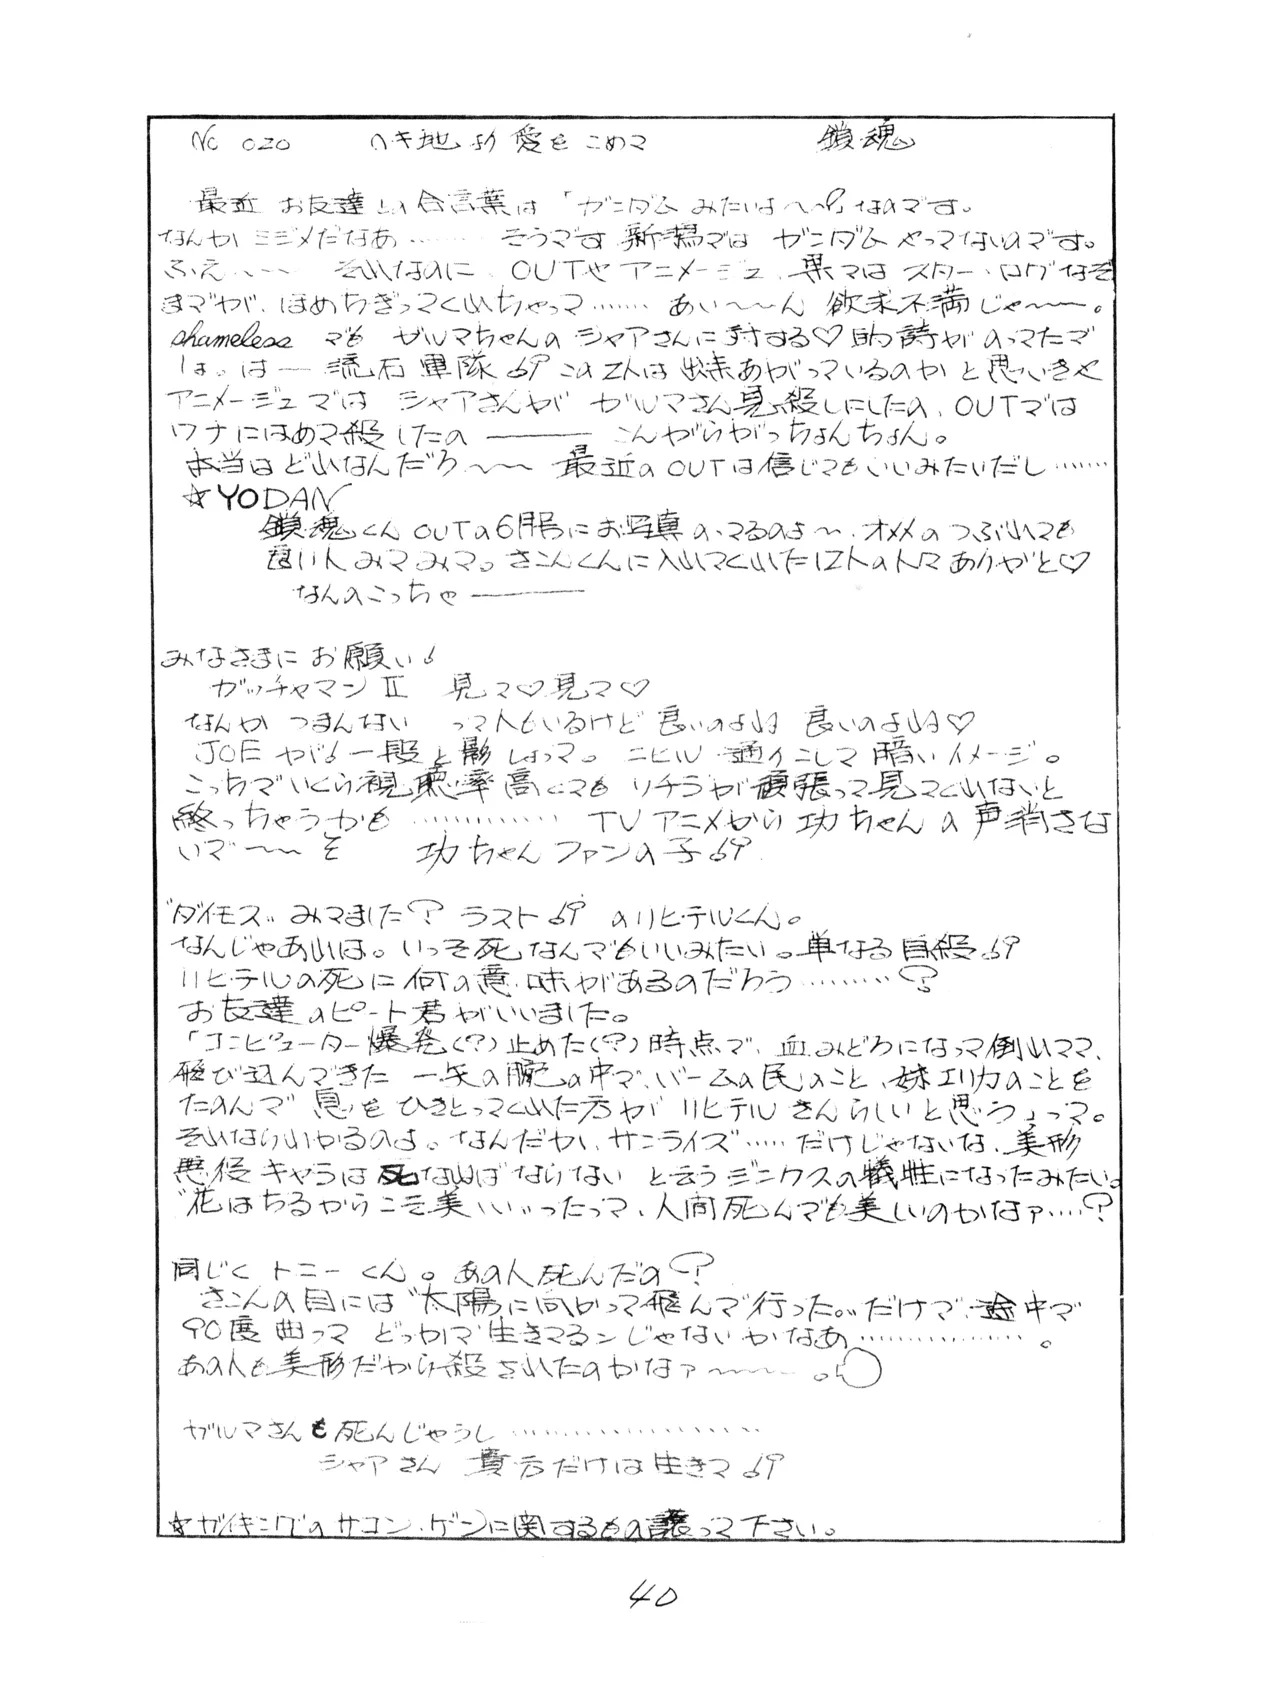 No 020 へキ地より愛をこめて 鎖魂
最近 お友達との合言葉は 「ガンダム みたいよ〜〜!」なのです。
なんかミジメだなあ…… そうです 新潟では ガンダム やってないのです。
ふえ〜〜 それなのに、OUTやアニメージュ、果てはスター・ログなぞ
までが、ほめちぎってくれちゃって…… あい〜〜ん 欲求不満じゃ〜〜。
shameless でも ガルマちゃんのシャアさんに対する♡的詩がのってたで
しょ。は― 流石軍隊!! この2人は出来あがっているのかと思いきや
アニメージュでは シャアさんが ガルマさん見殺しにしたの、OUTでは
ワナにはめて殺したの ――― こんがらがっちょんちょん。
本当はどれなんだろ〜〜 最近のOUTは信じてもいいみたいだし……
☆YODAN
鎖魂くんOUTの6月号にお写真のってるのよ〜、オメメのつぶれても
良い人みてみて。さこんくんに入れてくれた12人の人々ありがと♡
なんのこっちゃ ―――
みなさまにお願い!
ガッチャマンⅡ 見て♡見て♡
なんか つまんない って人もいるけど 良いのよ!! 良いのよ!!♡
JOE がも一段と影しょって。ニヒル通りこして暗いイメージ。
こっちでいくら視聴率高くてもソチラが頑張って見てくれないと
終っちゃうかも ………… TVアニメから 功ちゃんの声消さな
いで〜〜 と 功ちゃんファンの子!!
"ダイモス" みてました? ラスト!! のリヒテルくん。
なんじゃあれは。いっそ死なんでもいいみたい。単なる自殺!!
リヒテルの死に何の意味があるのだろう………?
お友達のピート君がいいました。
「コンピューター爆発(?)止めた(?)時点で、血みどろになって倒れてて、
飛び込んできた 一矢の腕の中で、バームの民のこと、妹エリカのことを
たのんで 息をひきとってくれた方が リヒテルさんらしいと思う」って。
それならわかるのよ。なんだかい、サンライズ…… だけじゃないな、美形
悪役キャラは死なねばならない と云うジンクスの犠牲になったみたい。
"花はちるからこそ美しい"ったって、人間死んでも美しいのかなァ……?
同じくトニーくん。あの人死んだの?
さこんの目には"太陽に向かって飛んで行った。"だけで、途中で
90度曲って どっかで生きてるンじゃないかなあ……………。
あの人も美形だから殺されたのかなァ〜〜〜。
ガルマさんも死んじゃうし ………………
シャアさん 貴方だけは生きて!!
☆ガイキングのサコン・ゲンに関するもの譲って下さい。
40